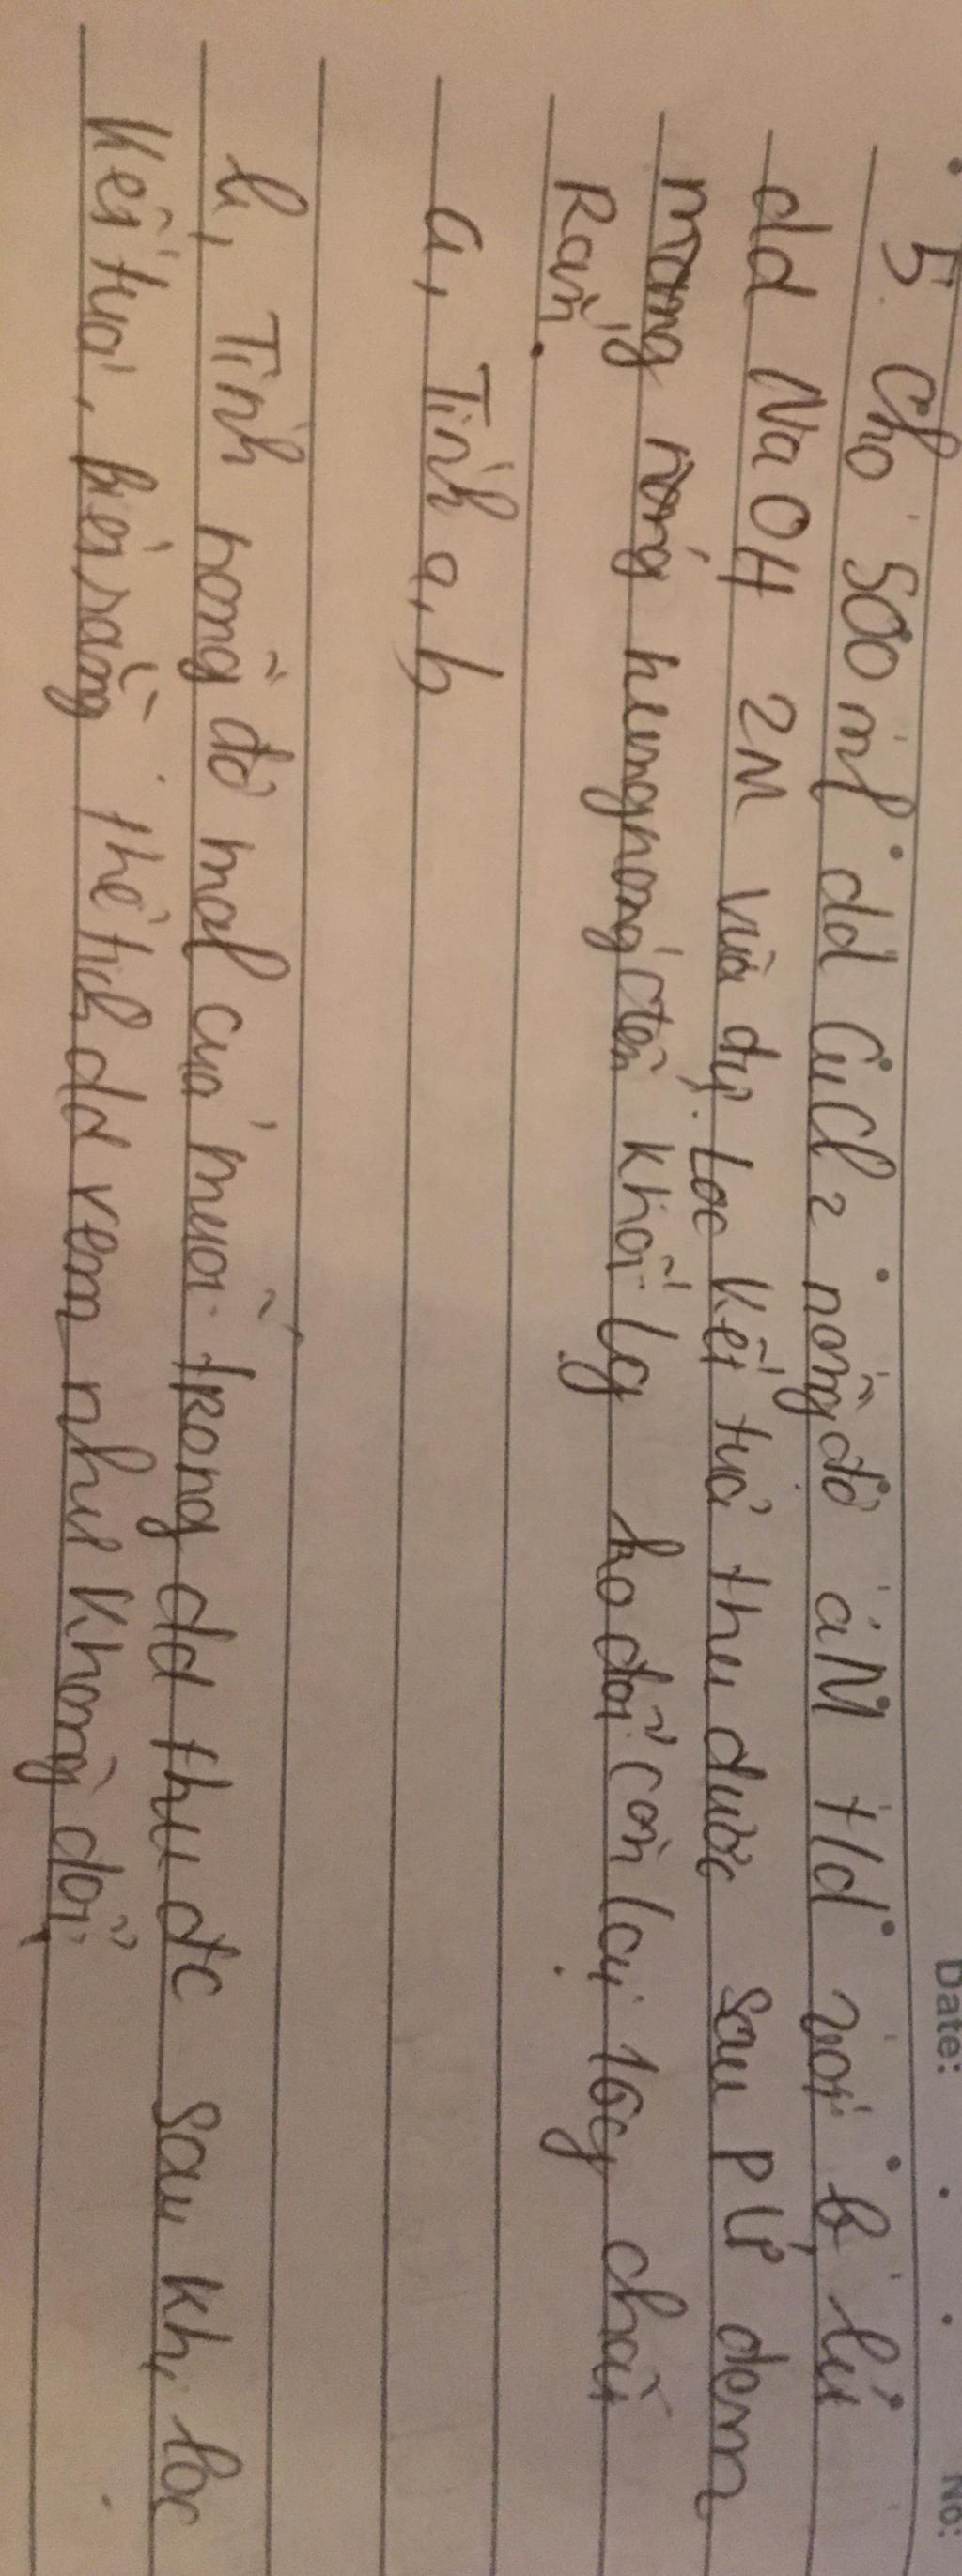 Date: No:
5. Cho 500 ml dd CuCl2 nồng độ a M t/d với b lít
dd NaOH 2M vừa đủ. Lọc kết tủa thu được sau PỨ đem
nung nóng đến khối lg ko đổi còn lại 16g chất
Rắn.
a, Tính a, b
b, Tính nồng độ mol của muối trong dd thu đc sau khi lọc
kết tủa, biết rằng thể tích dd xem như không đổi